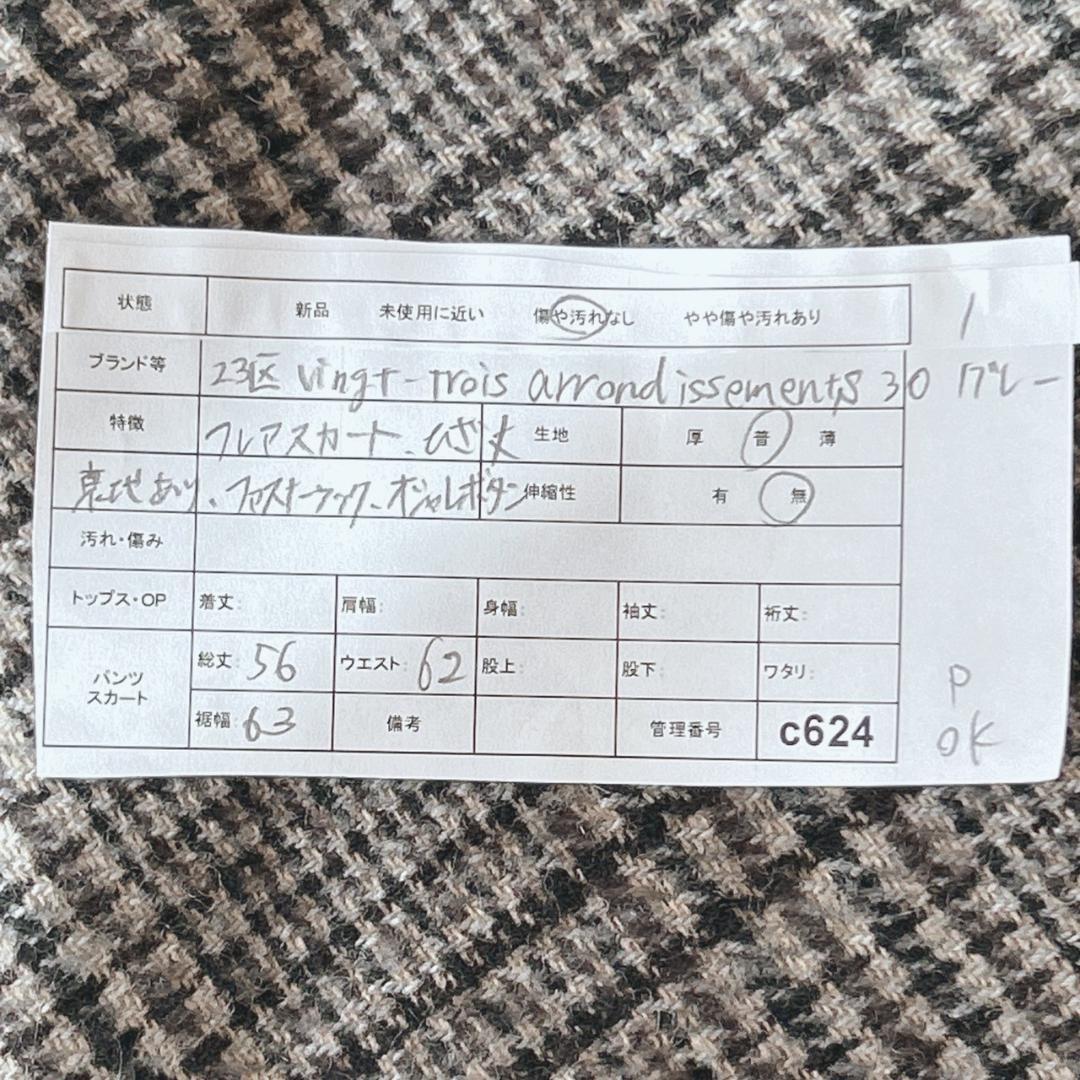 状態 新品 未使用に近い 傷や汚れなし やや傷や汚れあり 1
ブランド等 23区 vingt-trois arrondissements 30 グレー
特徴 フレアスカート、ひざ丈 生地 厚 普 薄
裏地あり、ファスナーフック、オシャレボタン 伸縮性 有 無
汚れ・傷み
トップス・OP 着丈: 肩幅: 身幅: 袖丈: 裄丈:
パンツ スカート 総丈: 56 ウエスト: 62 股上: 股下: ワタリ: P
裾幅: 63 備考 管理番号 c624 OK